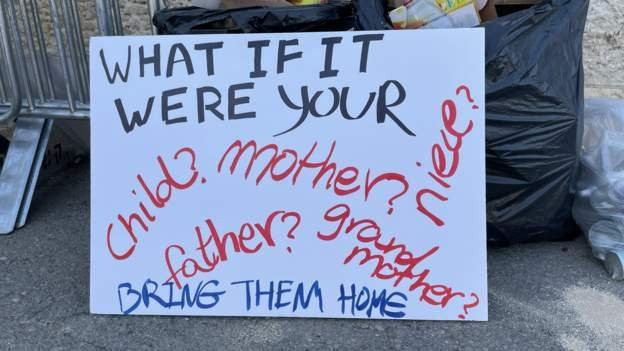 WHAT IF IT
WERE YOUR
child? mother? niece?
father? grand
mother?
BRING THEM HOME